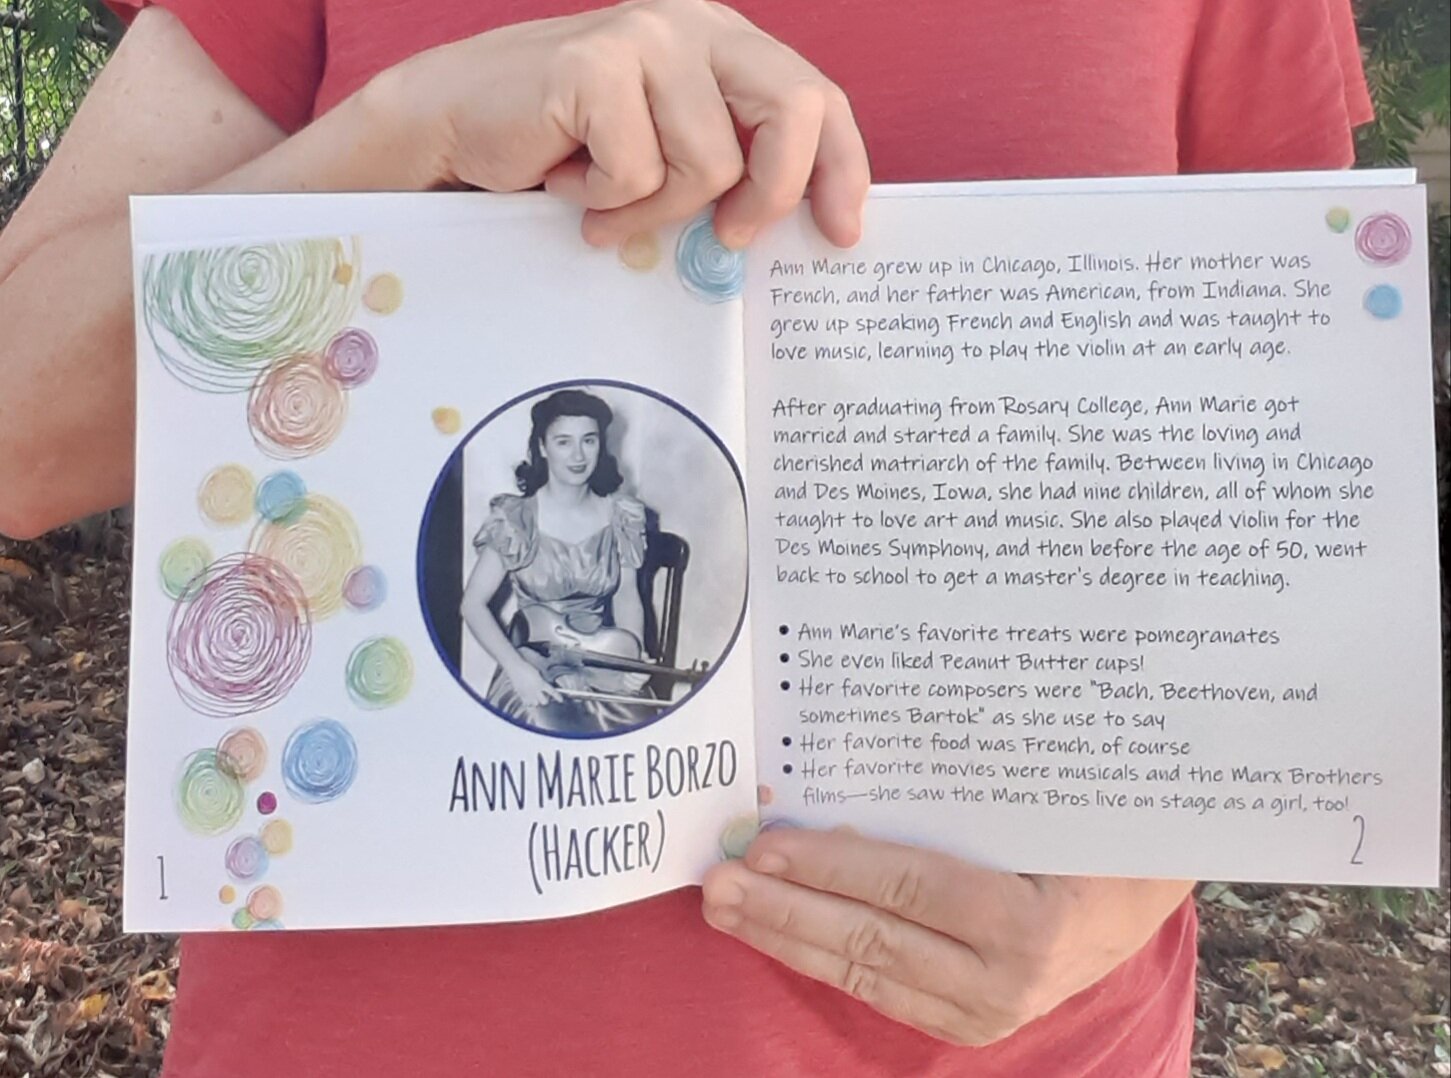 ANN MARIE BORZO
(HACKER)
1
Ann Marie grew up in Chicago, Illinois. Her mother was
French, and her father was American, from Indiana. She
grew up speaking French and English and was taught to
love music, learning to play the violin at an early age.
After graduating from Rosary College, Ann Marie got
married and started a family. She was the loving and
cherished matriarch of the family. Between living in Chicago
and Des Moines, Iowa, she had nine children, all of whom she
taught to love art and music. She also played violin for the
Des Moines Symphony, and then before the age of 50, went
back to school to get a master's degree in teaching.
• Ann Marie's favorite treats were pomegranates
• She even liked Peanut Butter cups!
• Her favorite composers were "Bach, Beethoven, and
sometimes Bartok" as she use to say
• Her favorite food was French, of course
• Her favorite movies were musicals and the Marx Brothers
films—she saw the Marx Bros live on stage as a girl, too!
2